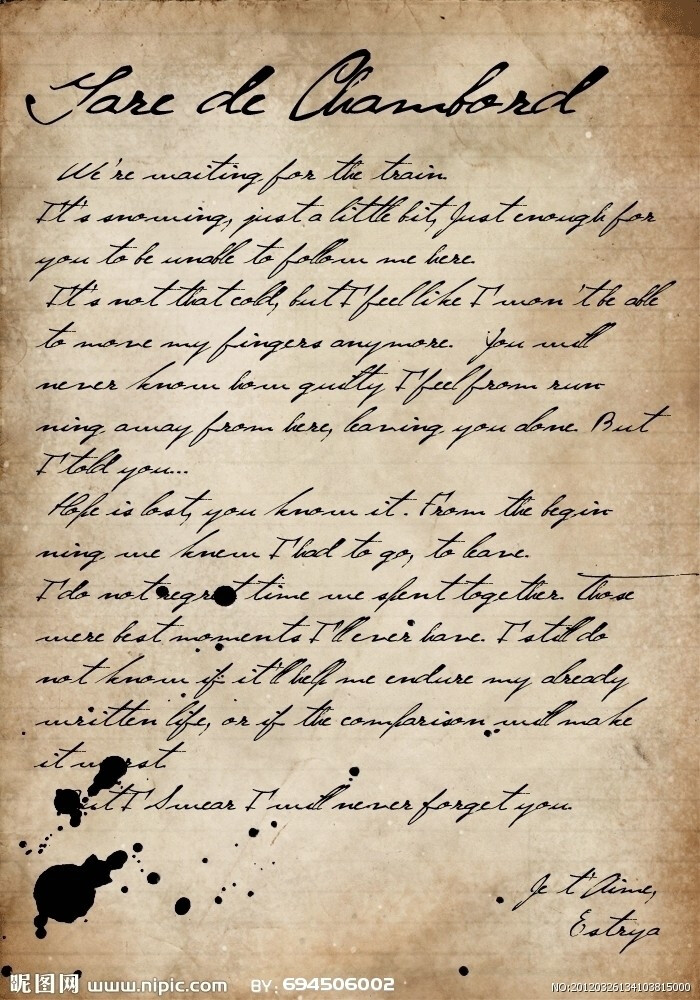 Gare de Chambord
We're waiting for the train.
It's snowing, just a little bit, Just enough for
you to be unable to follow me here.
It's not that cold, but I feel like I won't be able
to move my fingers anymore. You will
never know how guilty I feel from run
ning away from here, leaving you alone. But
I told you...
Hope is lost, you know it. From the begin
ning we knew I had to go, to leave.
I do not regret time we spent together. Those
were best moments I'll ever have. I still do
not know if it'll help me endure my already
written life, or if the comparison will make
it worst.
But I Swear I will never forget you.
Je t'Aime,
Estrya
昵图网 www.nipic.com BY: 694506002
NO:20120326134103815000